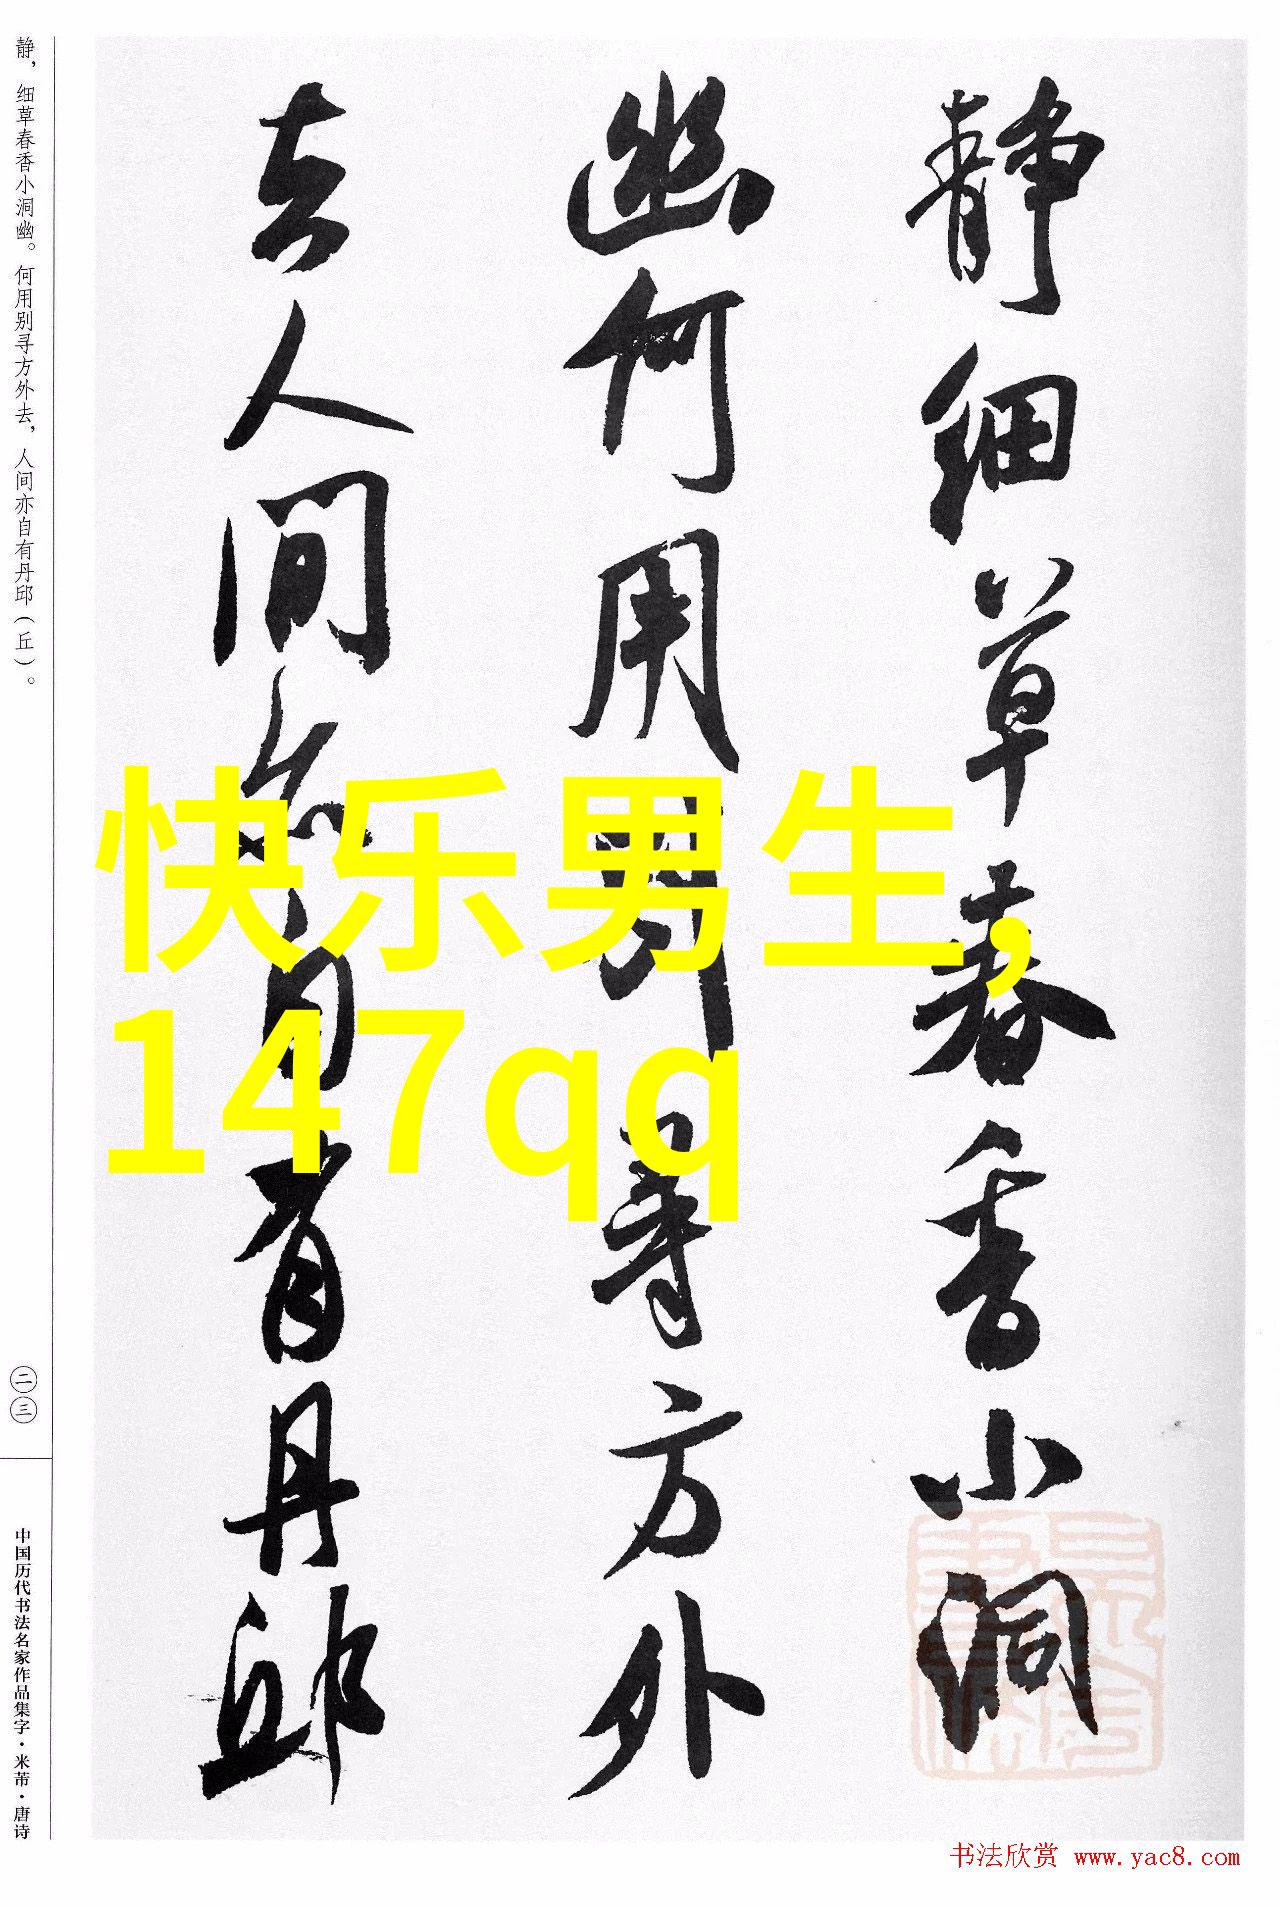 静细草春香小洞
幽何用别寻方外
去人间亦自有丹邱
静，细草春香小洞幽。何用别寻方外去，人间亦自有丹邱（丘）。
二三
中国历代书法名家作品集字·米芾·唐诗
快乐男生,
147qq
书法欣赏 www.yac8.com